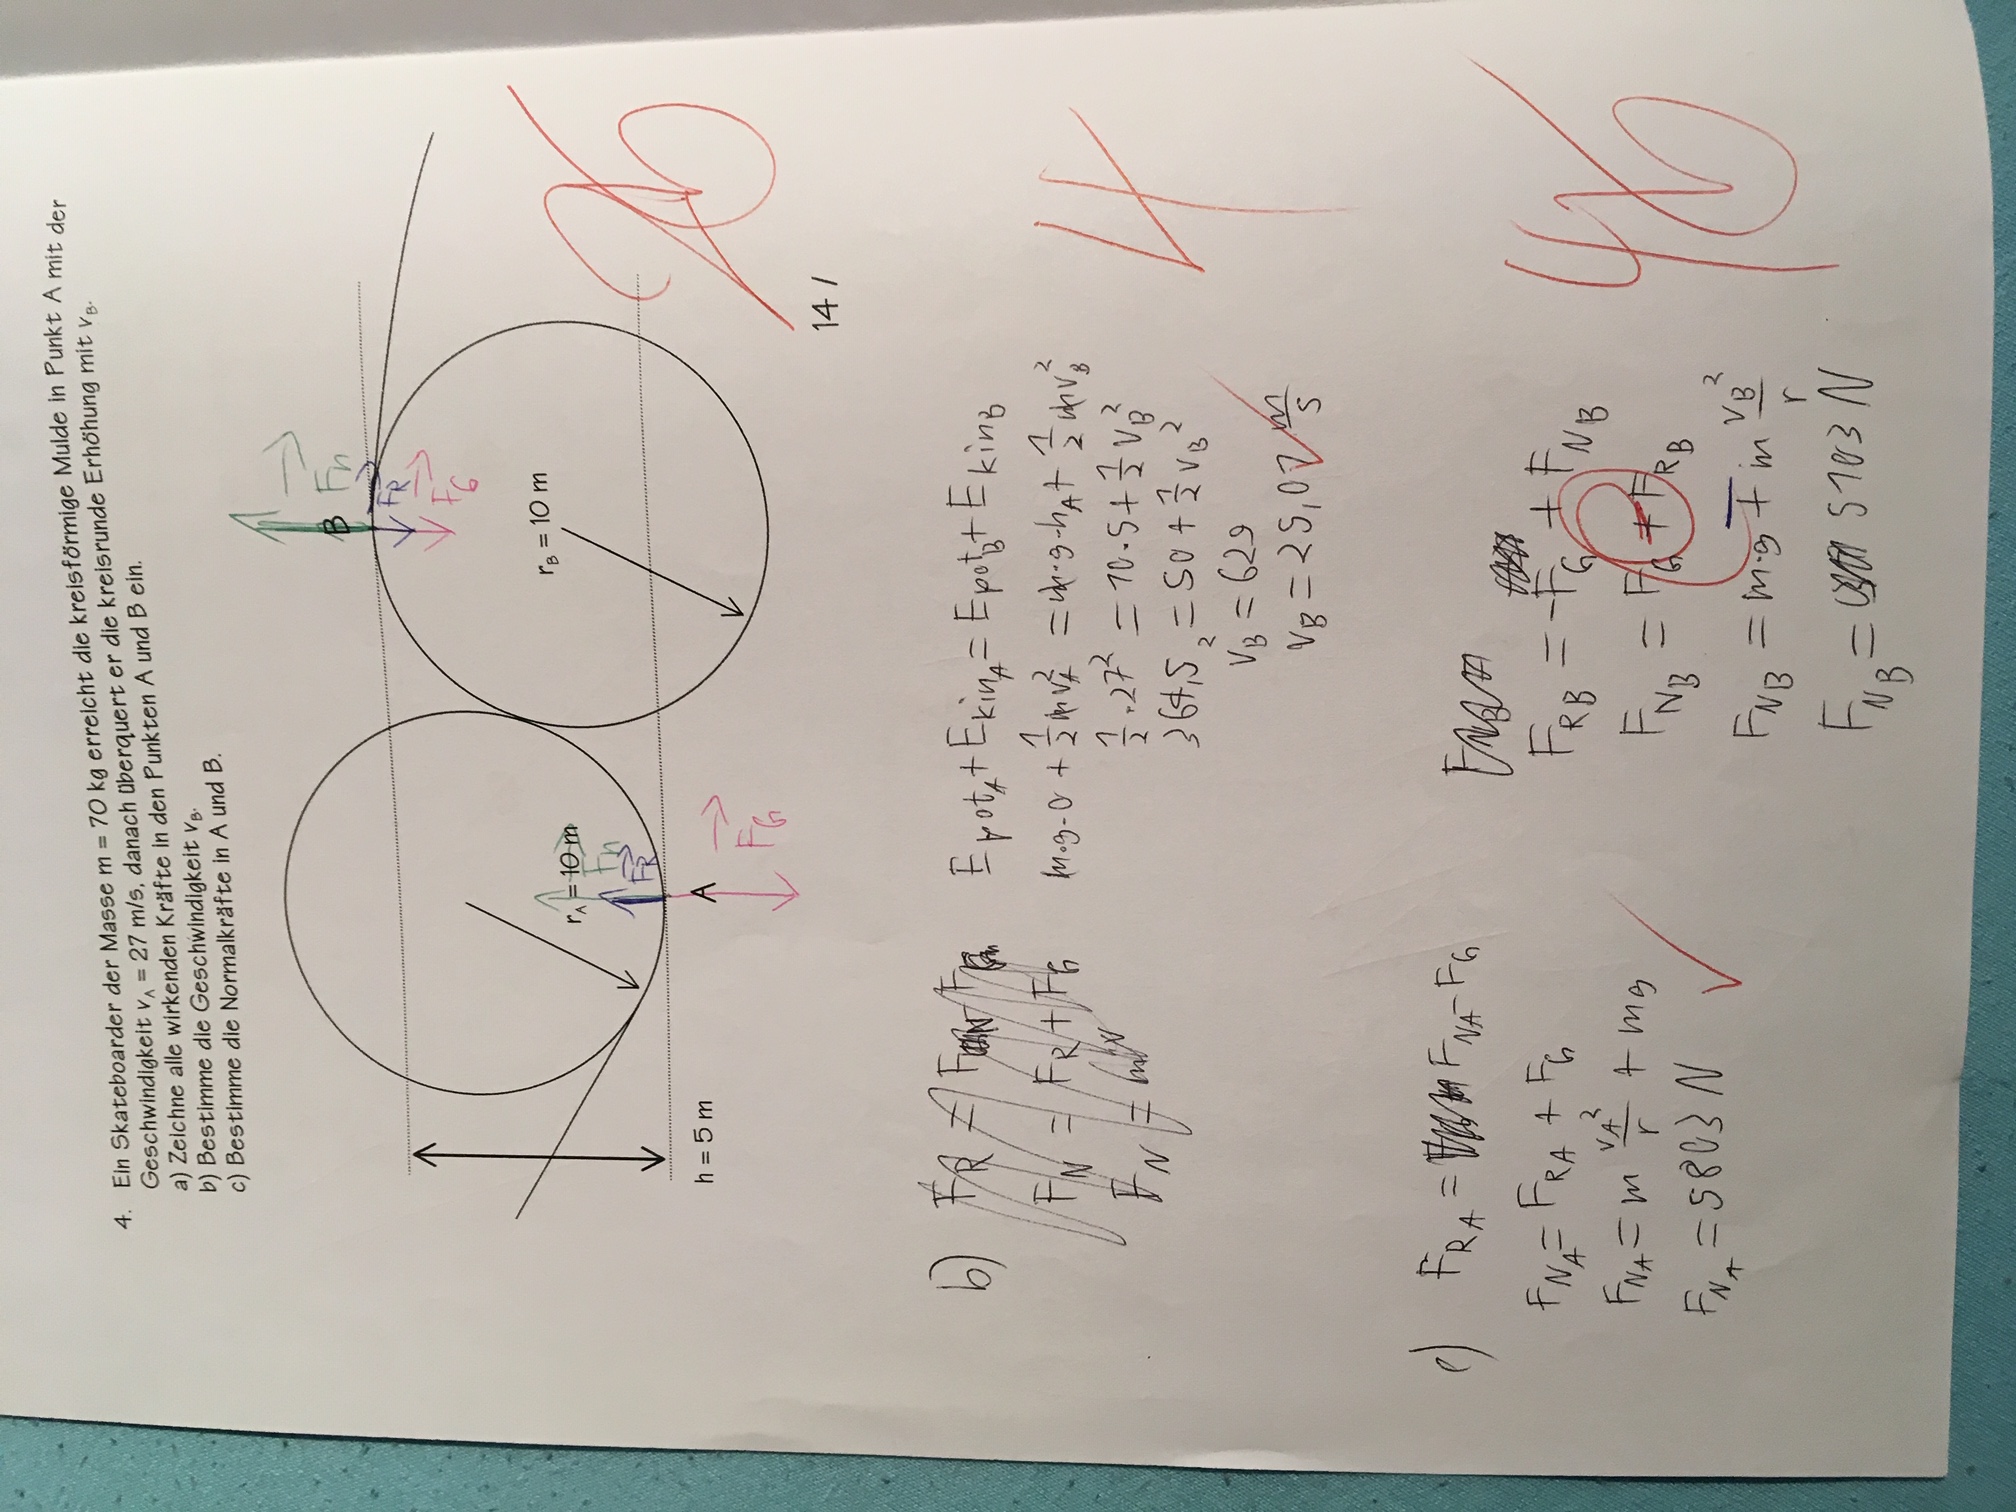 4. Ein Skateboarder der Masse m = 70 kg erreicht die kreisförmige Mulde in Punkt A mit der
Geschwindigkeit v_A = 27 m/s, danach überquert er die kreisrunde Erhöhung mit v_B.
a) Zeichne alle wirkenden Kräfte in den Punkten A und B ein.
b) Bestimme die Geschwindigkeit v_B.
c) Bestimme die Normalkräfte in A und B.
B
Fn
FR
FG
r_B = 10 m
r_A = 10 m
Fn
FR
h = 5 m
A
FG
14 /
b) F_R = F_N - F_G
F_N = F_R + F_G
F_N = m
E_potA + E_kinA = E_potB + E_kinB
m·g·0 + 1/2 m v_A² = m·g·h_A + 1/2 m v_B²
1/2 · 27² = 10·5 + 1/2 v_B²
364,5 = 50 + 1/2 v_B²
v_B² = 629
v_B = 25,07 m/s
4
c) F_RA = F_NA - F_G
F_NA = F_RA + F_G
F_NA = m v_A²/r + mg
F_NA = 5803 N
F_RB = -F_G + F_NB
F_NB = F_G + F_RB
F_NB = m·g + m v_B²/r
F_NB = 5103 N